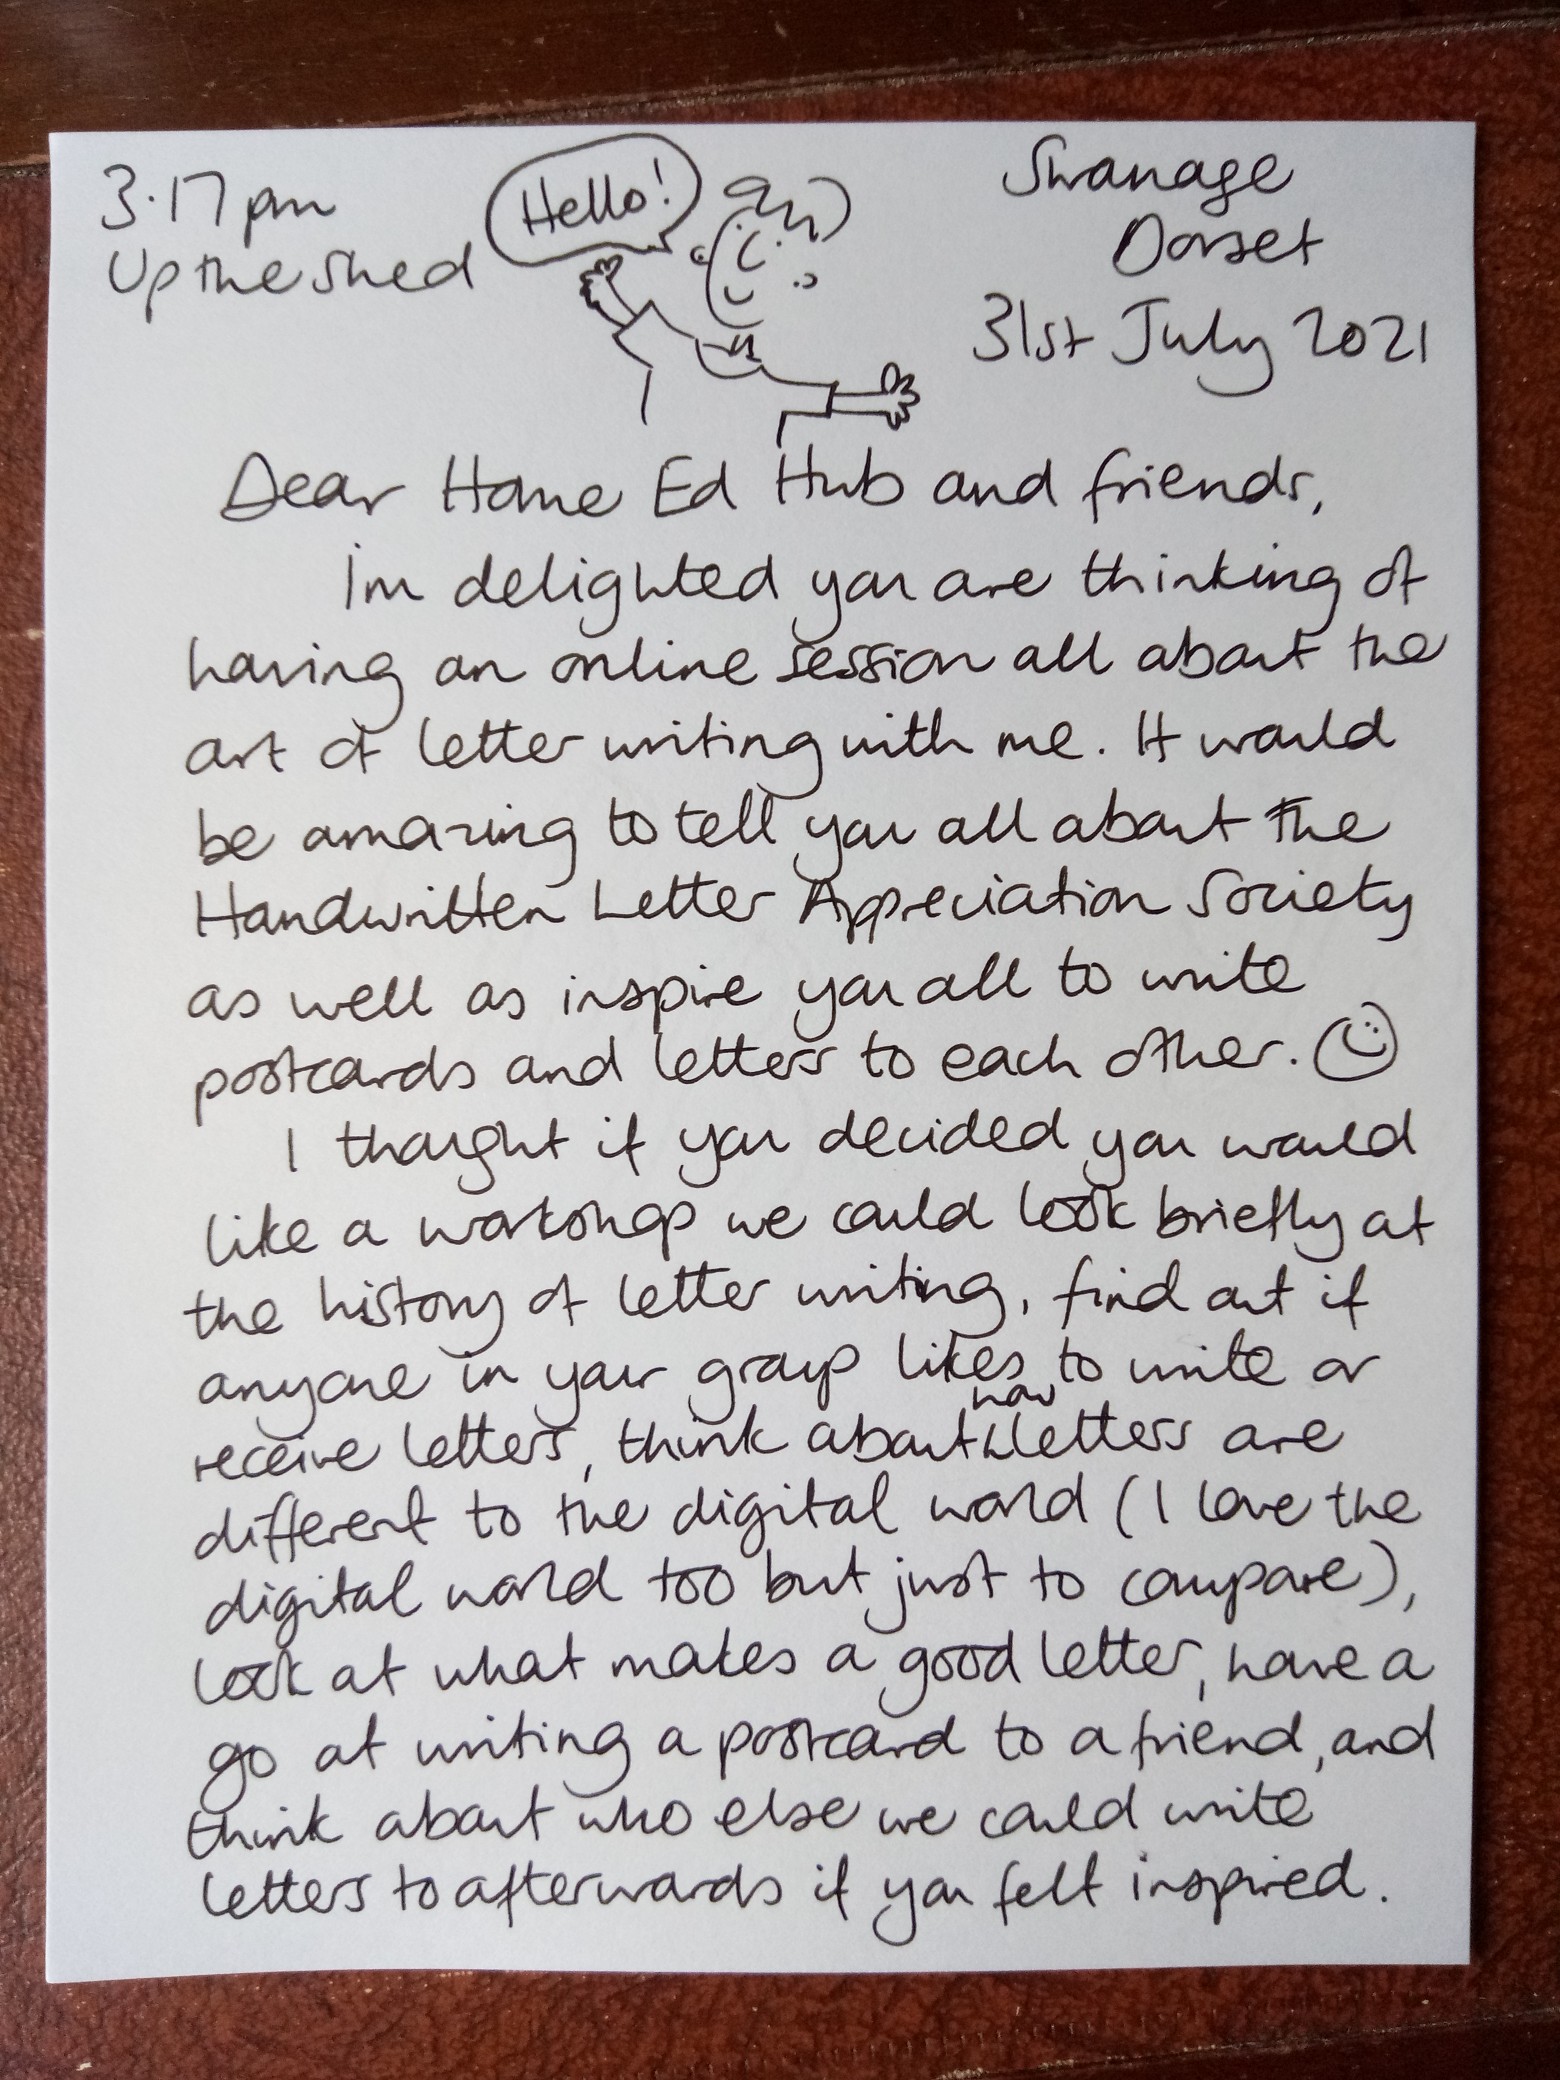 3.17pm
Up the shed
Hello!
Swanage
Dorset
31st July 2021
Dear Home Ed Hub and friends,
I'm delighted you are thinking of
having an online session all about the
art of letter writing with me. It would
be amazing to tell you all about the
Handwritten Letter Appreciation Society
as well as inspire you all to write
postcards and letters to each other.
I thought if you decided you would
like a workshop we could look briefly at
the history of letter writing, find out if
anyone in your group likes to write or
receive letters, think about how letters are
different to the digital world (I love the
digital world too but just to compare),
look at what makes a good letter, have a
go at writing a postcard to a friend, and
think about who else we could write
letters to afterwards if you felt inspired.